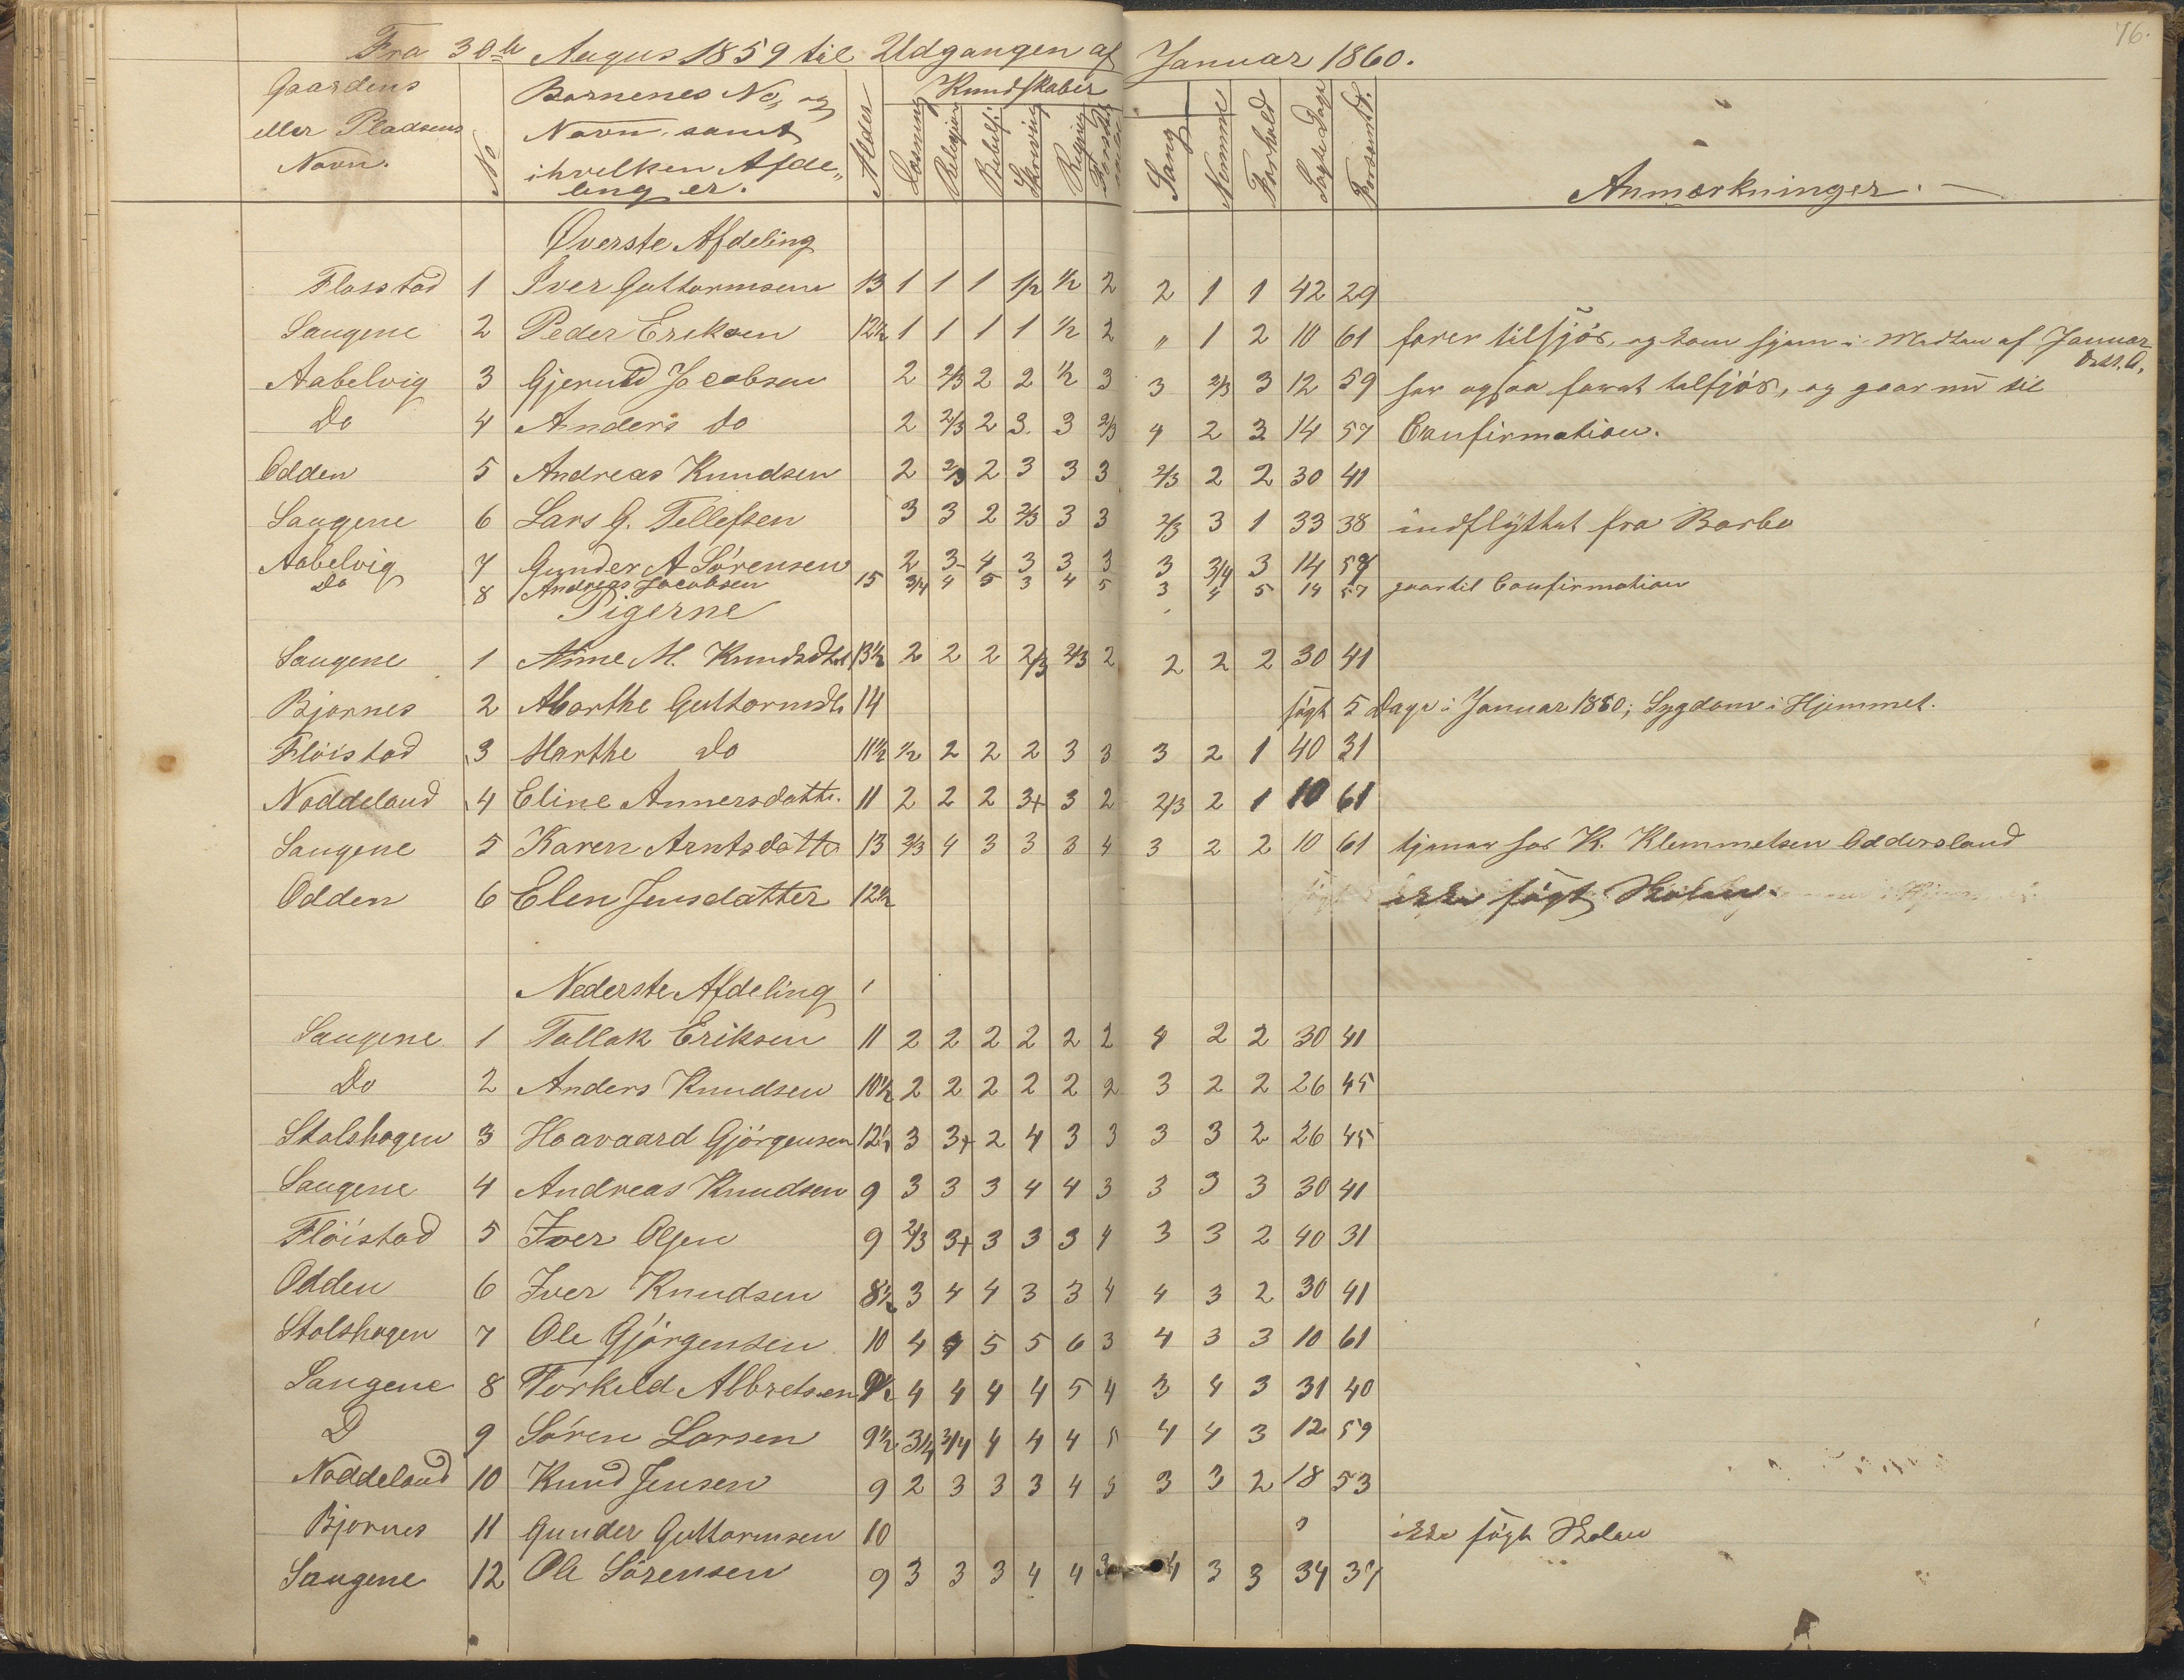 76.
Fra 30te Augus 1859 til Udgangen af Januar 1860.
Gaardens eller Pladsens Navn. No Børnenes No, og Navn, samt ihvilken Afdeling er. Alder Kundskaber Læsning Religion Bibelh: Skrivning Regning Forstand Sang Nemme Forhold Søgte Dage Forsømt d. Anmærkninger.
Øverste Afdeling
Flosstad 1 Iver Guttormsen 13 1 1 1 1/2 1/2 2 2 1 1 42 29
Saugene 2 Peder Eriksen 12½ 1 1 1 1 1/2 2 " 1 2 10 61 farer tilsjös, og kom hjem i Midten af Januar
Aabelvig 3 Gjeruld Jacobsen 2 2/3 2 2 1/2 3 3 2/3 3 12 59 har ogsaa faret tilsjös, og gaar nu til
Do 4 Anders do 2 2/3 2 3 3 2/3 4 2 3 14 57 Confirmation.
Odden 5 Andreas Knudsen 2 2/3 2 3 3 3 2/3 2 2 30 41
Saugene 6 Lars G. Tellefsen 3 3 2 2/3 3 3 2/3 3 1 33 38 indflÿttet fra Barbo
Aabelvig 7 Gunder A Sörensen 2 3- 4 3 3 3 3 3/4 3 14 57
Do 8 Andreas Jacobsen 15 3/4 4 5 3 4 5 3 4 5 14 57 gaar til Confirmation
Pigerne
Saugene 1 Anne M. Knudsdtr 13½ 2 2 2 2/3 2/3 2 2 2 2 30 41
Bjornes 2 Marthe Guttormdtr 14 søgt 5 Dage i Januar 1860; Sygdom i Hjemmet.
Flöistad 3 Marthe do 11½ 1/2 2 2 2 3 3 3 2 1 40 31
Noddeland 4 Eline Annersdattr. 11 2 2 2 3+ 3 2 2/3 2 1 10 61
Saugene 5 Karen Arntsdattr 13 2/3 4 3 3 3 4 3 2 2 10 61 tjener hos K. Klemmetsen Oddersland
Odden 6 Elen Jensdatter 12½ ikke søgt Skolen.
Nederste Afdeling
Saugene 1 Tallak Eriksen 11 2 2 2 2 2 2 4 2 2 30 41
Do 2 Anders Knudsen 10½ 2 2 2 2 2 2 3 2 2 26 45
Stolshagen 3 Haavaard Gjörgensen 12½ 3 3+ 2 4 3 3 3 3 2 26 45
Saugene 4 Andreas Knudsen 9 3 3 3 4 4 3 3 3 3 30 41
Flöistad 5 Iver Olsen 9 2/3 3+ 3 3 3 4 3 3 2 40 31
Odden 6 Iver Knudsen 8½ 3 4 4 3 3 4 4 3 2 30 41
Stolshagen 7 Ole Gjörgensen 10 4 4 5 5 6 3 4 3 3 10 61
Saugene 8 Torkild Albretsen 9½ 4 4 4 4 5 4 3 4 3 31 40
D 9 Sören Larsen 9½ 3/4 3/4 4 4 4 5 4 4 3 12 59
Noddeland 10 Knud Jensen 9 2 3 3 3 4 5 3 3 2 18 53
Bjornes 11 Gunder Guttormsen 10 ikke søgt Skolen
Saugene 12 Ole Sörensen 9 3 3 3 4 4 3 4 3 3 34 37